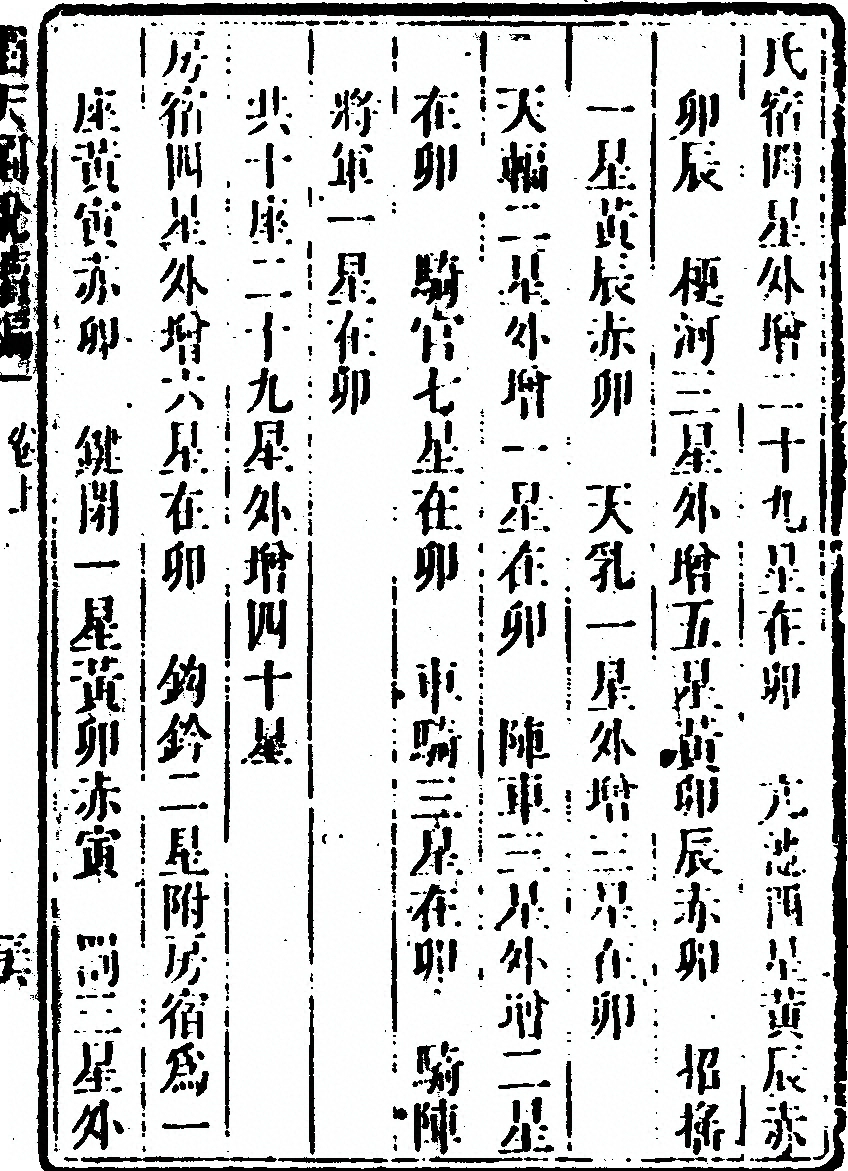 氐宿四星外增二十九星在卯　亢池四星黃辰赤
卯辰　梗河三星外增五星黃卯辰赤卯　招搖
一星黃辰赤卯　天乳一星外增三星在卯
天輻二星外增一星在卯　陣車三星外增二星
在卯　騎官七星在卯　車騎三星在卯　騎陣
將軍一星在卯
共十座二十九星外增四十星
房宿四星外增六星在卯　鉤鈐二星附房宿爲一
座黃寅赤卯　鍵閉一星黃卯赤寅　罰三星外
天圖說續編一　卷上